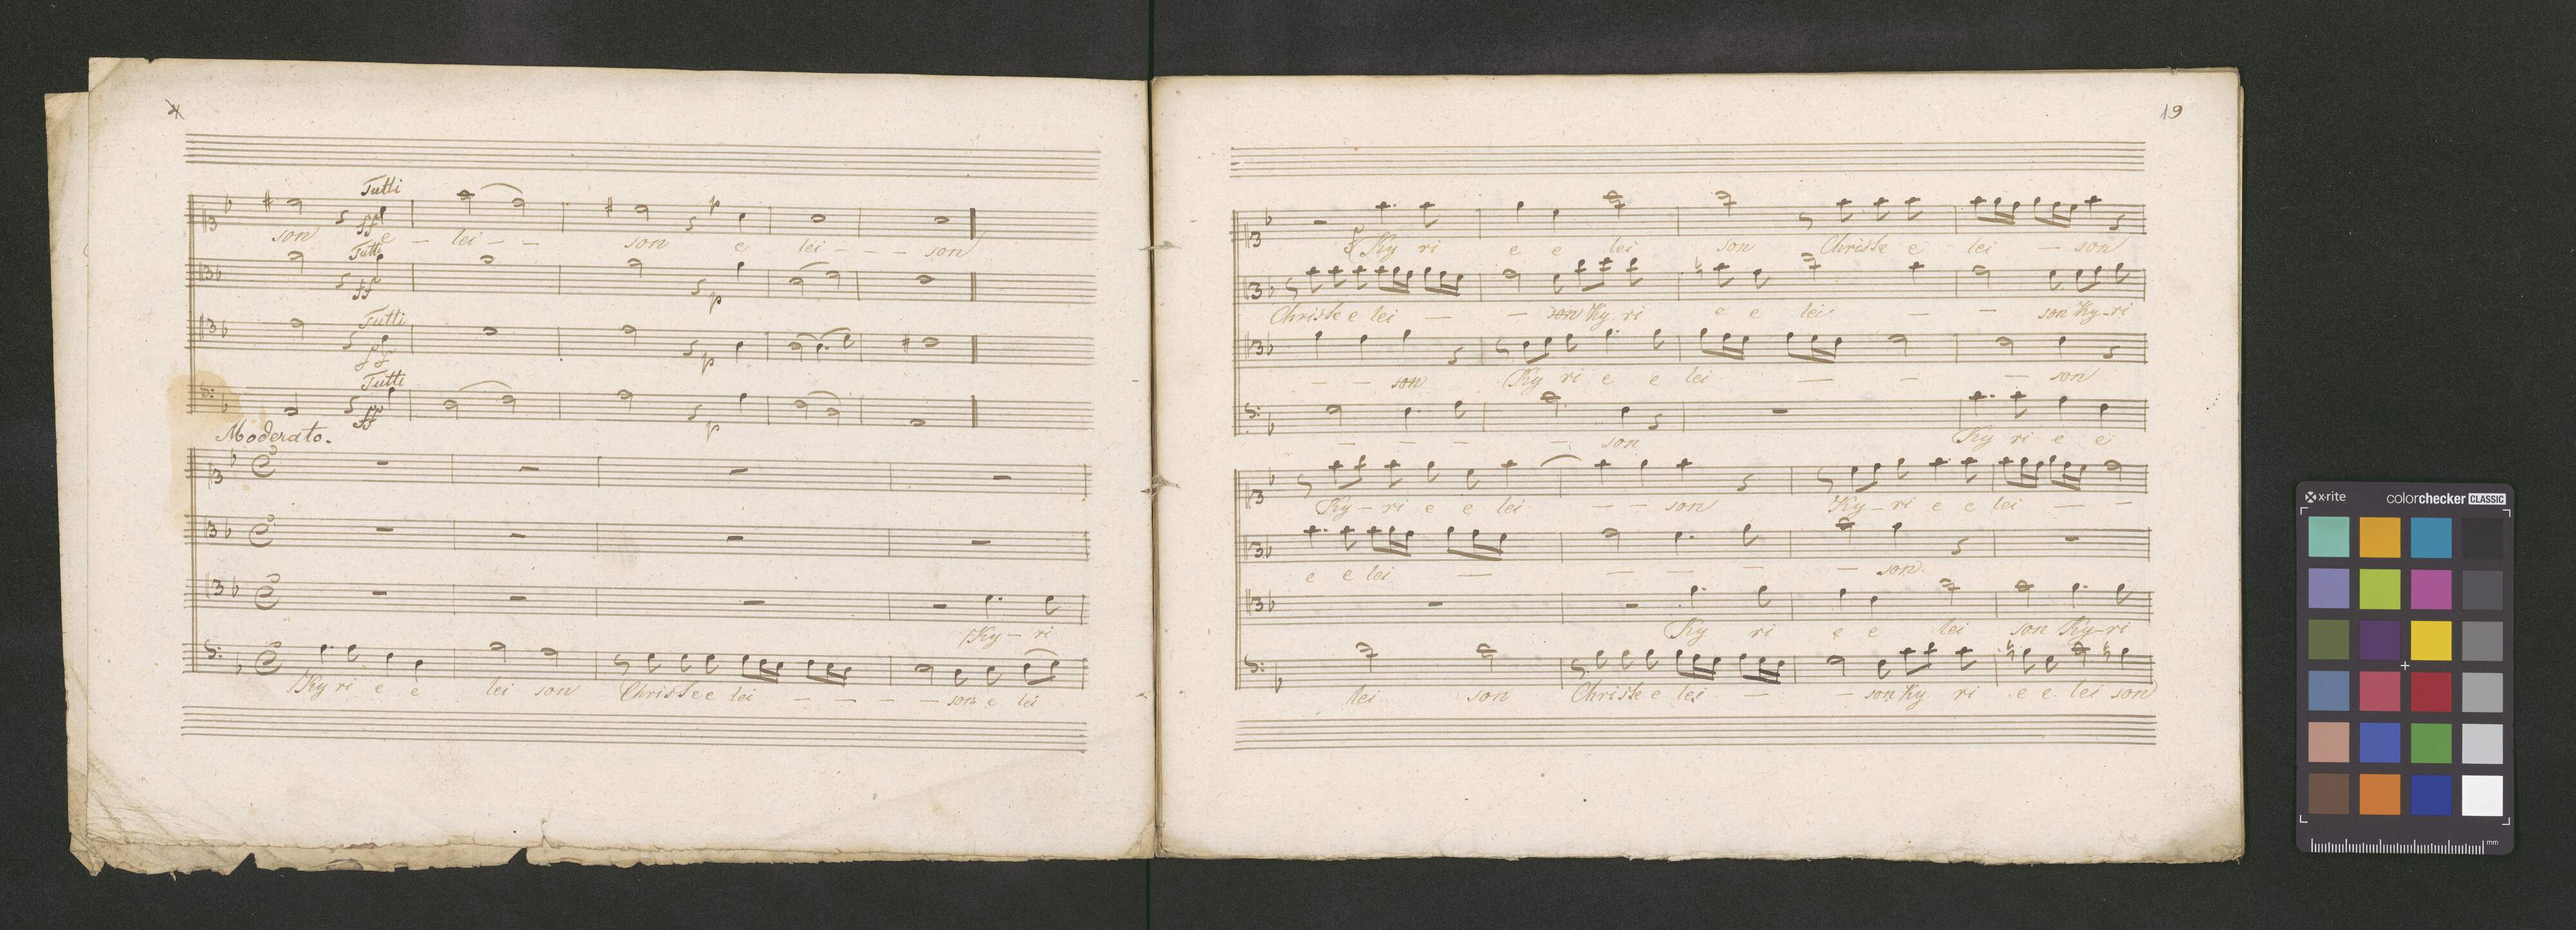 Tutti
son e - lei - - son e lei - - - son
Tutti
ff p
Tutti
ff p
Tutti
ff p
Moderato.
Ky - ri
Ky ri e e lei son Christe e lei - - - - son e lei
19
Ky ri e e lei son Christe e lei - son
Christe e lei - - son Ky ri e e lei - - son Ky - ri
- - son Ky ri e e lei - - - son
- - - - son Ky ri e e
Ky - ri e e lei - - son Ky - ri e e lei - -
e e lei - - - - - son.
Ky ri e e lei son Ky - ri
lei son Christe e lei - - son Ky ri e e lei son
x·rite colorchecker CLASSIC
mm